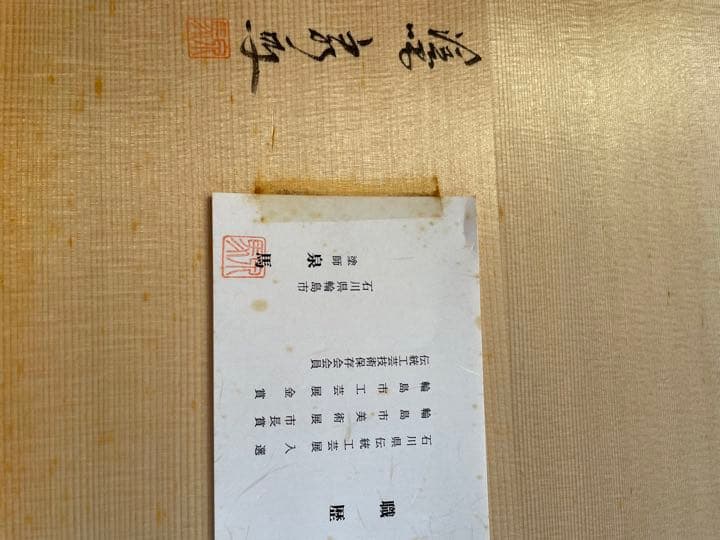 職歴
石川県伝統工芸展入選
輪島市美術展市長賞
輪島市工芸展金賞
伝統工芸技術保存会会員
石川県輪島市
塗師 泉馬